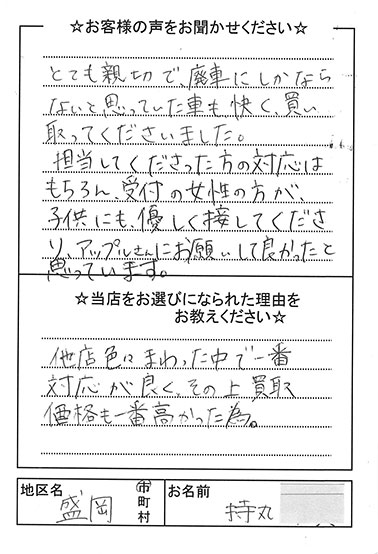 ☆お客様の声をお聞かせください☆
とても親切で、廃車にしかなら
ないと思っていた車も快く、買い
取ってくださいました。
担当してくださった方の対応は
もちろん、受付の女性の方が、
子供にも、優しく接してくださ
り、アップルさんにお願いして良かったと
思っています。
☆当店をお選びになられた理由を
お教えください☆
他店色々まわった中で一番
対応が良く、その上買取
価格も一番高かった為。
地区名 盛岡 市町村 お名前 持丸